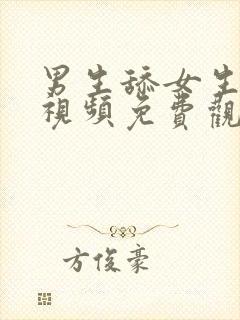 男生舔女生
視頻免費觀
方俊豪